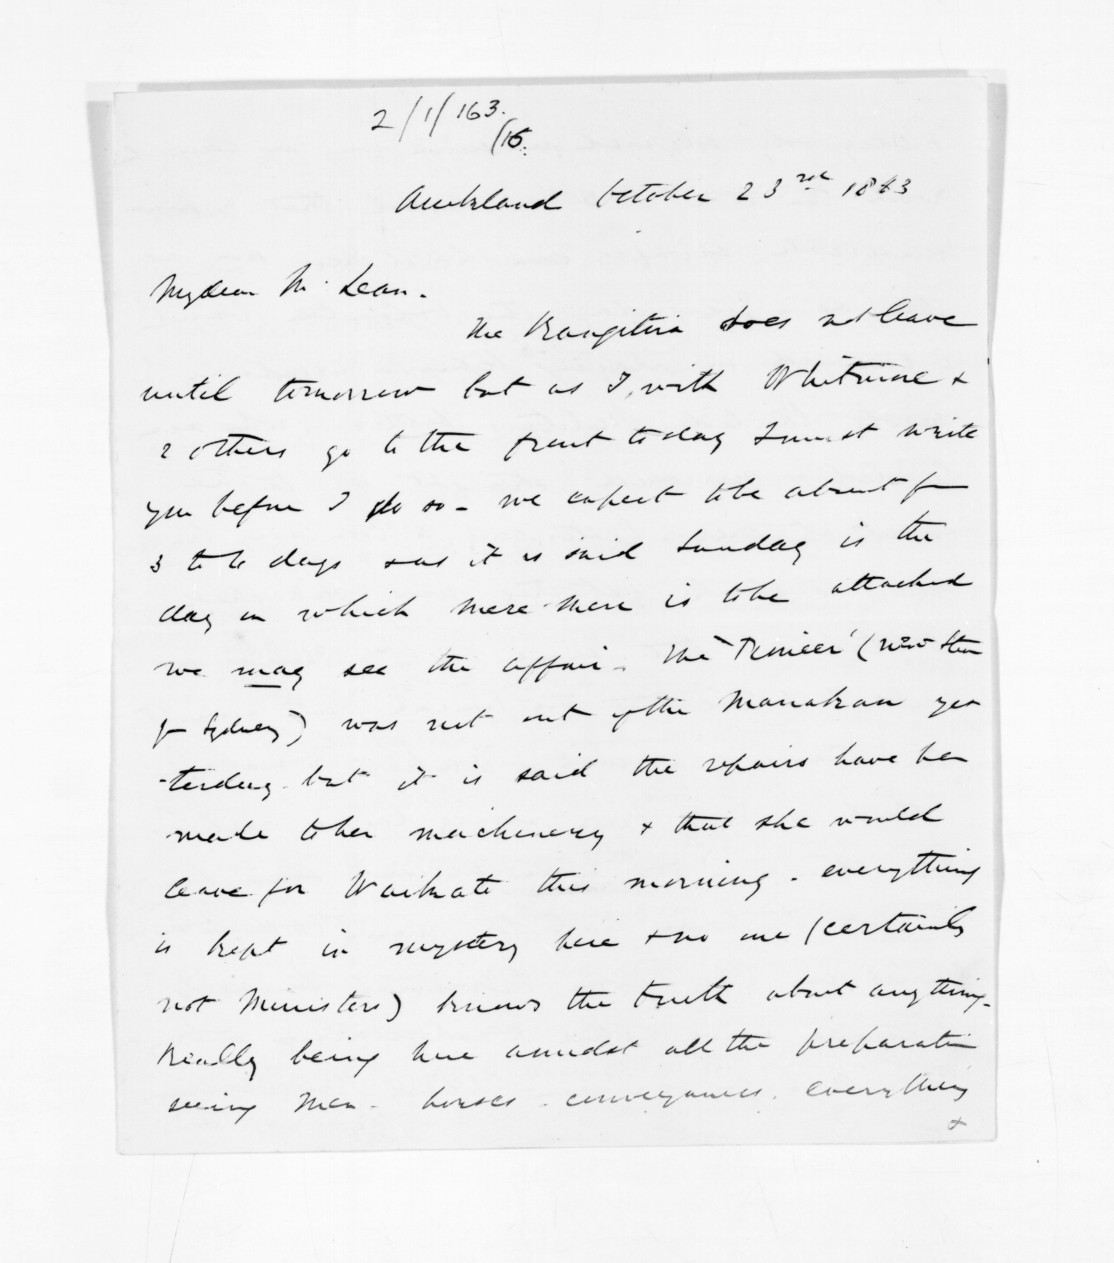 2/1/163.
/15.
Auckland October 23rd 1863
My dear McLean.
The Rangitira does not leave
until tomorrow but as I, with Whitmore &
2 others go to the front today I must write
you before I do so - we expect to be absent for
3 to 6 days & as it is said Sunday is the
day on which Mere Mere is to be attacked
we may see the affair. The 'Pioneer' (new Stm
fr Sydney) was not out of the Manakau yes
-terday but it is said the repairs have been
made to her machinery & that she would
leave for Waikato this morning. everything
is kept in mystery here & no one (certainly
not Ministers) knows the truth about anything.
Really being here amidst all the preparation
seeing Men. horses. conveyances. everything
&